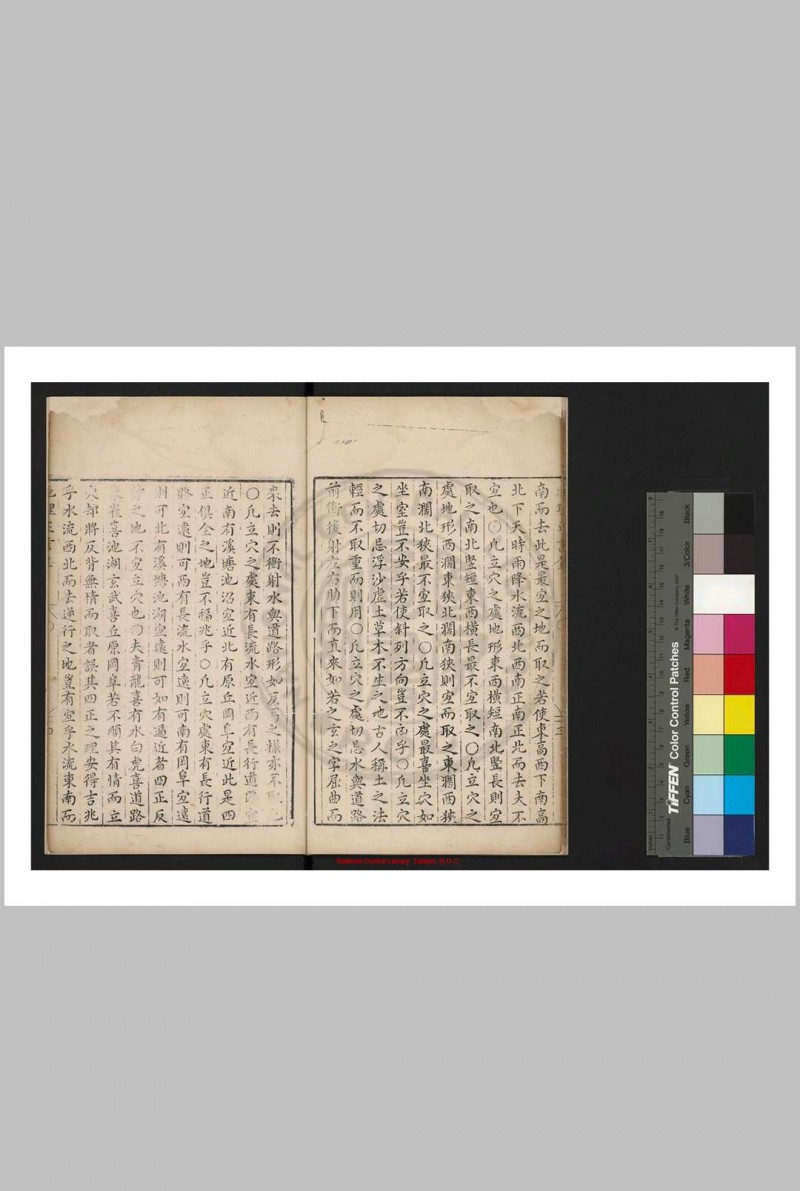 南而去此是最宜之地而取之若使東高西下南高
北下天時雨降水流西北西南正南正北而去夫不
宜也〇凡立穴之處地形東西橫短南北竪長則宜
取之南北竪短東西橫長最不宜取之〇凡立穴之
處地形西濶東狹北濶南狹則宜而取之東濶西狹
南濶北狹最不宜取之〇凡立穴之處最喜坐穴如
坐室豈不安乎若使針列方向豈不凶乎〇凡立穴
之處切忌浮沙虛土草木不生之地古人稱土之法
輕而不取重而則用〇凡立穴之處切忌水與道路
前衝後射左右助下而直來如若之玄之字屈曲而
來去則不衝射水與道路形如反弓之樣亦不取
〇凡立穴之處東有長流水宜近西有長行道
近南有溪塘池沼宜近北有原丘岡阜宜近此是四
正俱全之地豈不福兆乎〇凡立穴處東有長行道
路宜遠則可西有長流水宜遠則可南有岡阜宜遠
則可北有溪塘池湖宜遠則可如有逼近者四正反
之地不宜立穴也〇夫青龍喜有水白虎喜道路
朱雀喜池湖玄武喜丘原岡阜若不順其有情而立
穴却將反背無情而取者誤其四正之理安得吉兆
乎水流西北而去逆行之地豈有宜乎水流東南而
National Central Library, Taiwan, R.O.C
TIFFEN Color Control Patches
© The Tiffen Company, 2007
Centimetres
Inches
Blue
Cyan
Green
Yellow
Red
Magenta
White
3/Color
Black